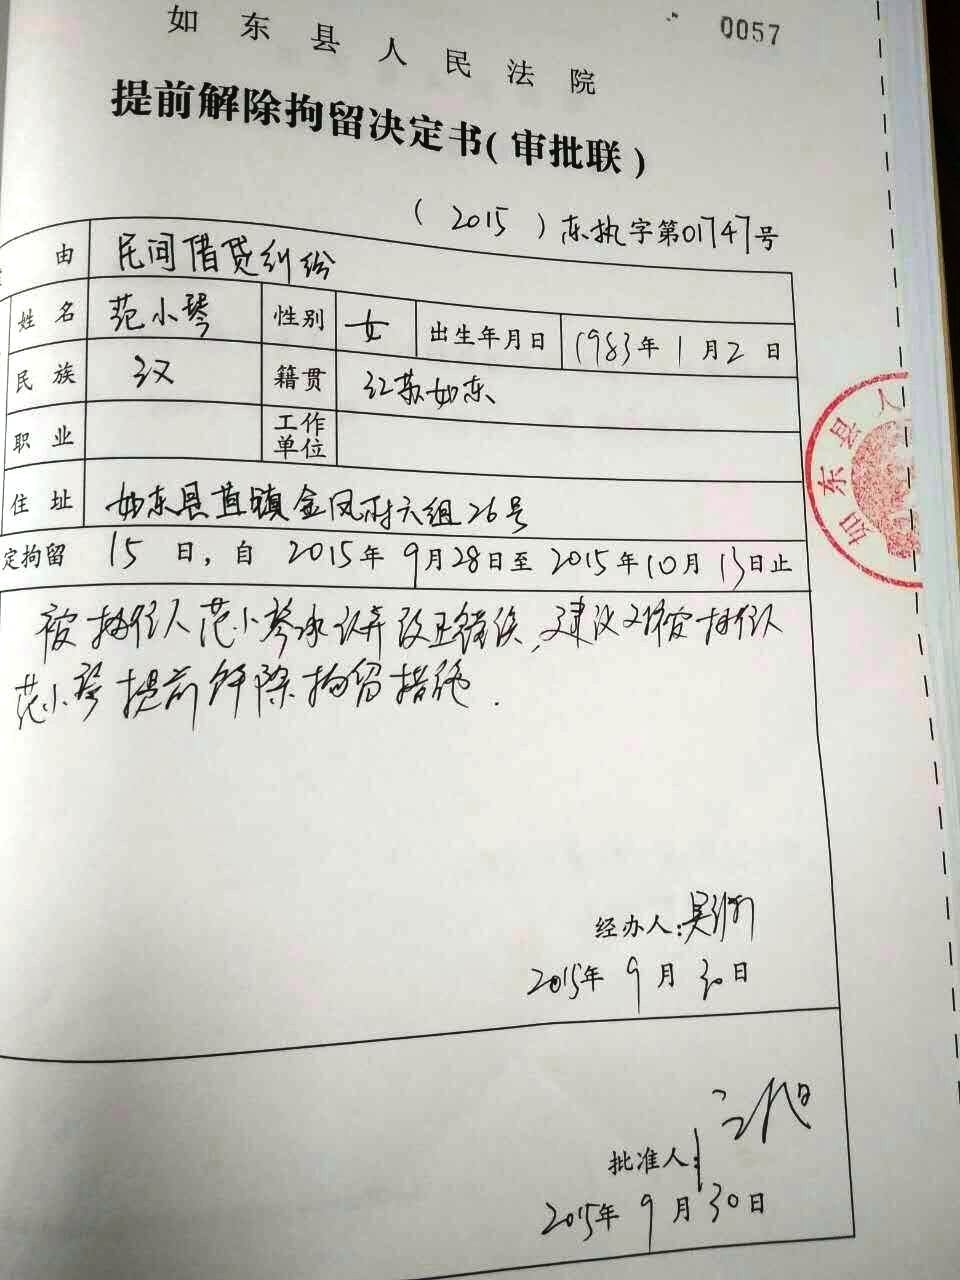 0057
如东县人民法院
提前解除拘留决定书(审批联)
(2015)东执字第01747号
由 民间借贷纠纷
姓名 范小琴 性别 女 出生年月日 1983年1月2日
民族 汉 籍贯 江苏如东
职业 工作单位
住址 如东县苴镇金凤村六组26号
定拘留 15日,自2015年9月28日至2015年10月13日止
如东县人
被执行人范小琴承认并改正错误,建议对被执行人
范小琴提前解除拘留措施.
经办人:吴
2015年9月30日
批准人:
2015年9月30日